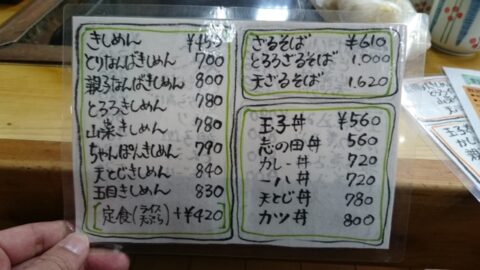 きしめん ¥450
とりなんばきしめん 700
親子なんばきしめん 800
とろろきしめん 780
山菜きしめん 780
ちゃんぽんきしめん 790
天とじきしめん 840
五目きしめん 830
定食(ライス 天ぷら) +¥420
ざるそば ¥610
とろろざるそば 1,000
天ざるそば 1,620
玉子丼 ¥560
志の田丼 560
カレー丼 720
一八丼 720
天とじ丼 780
カツ丼 800